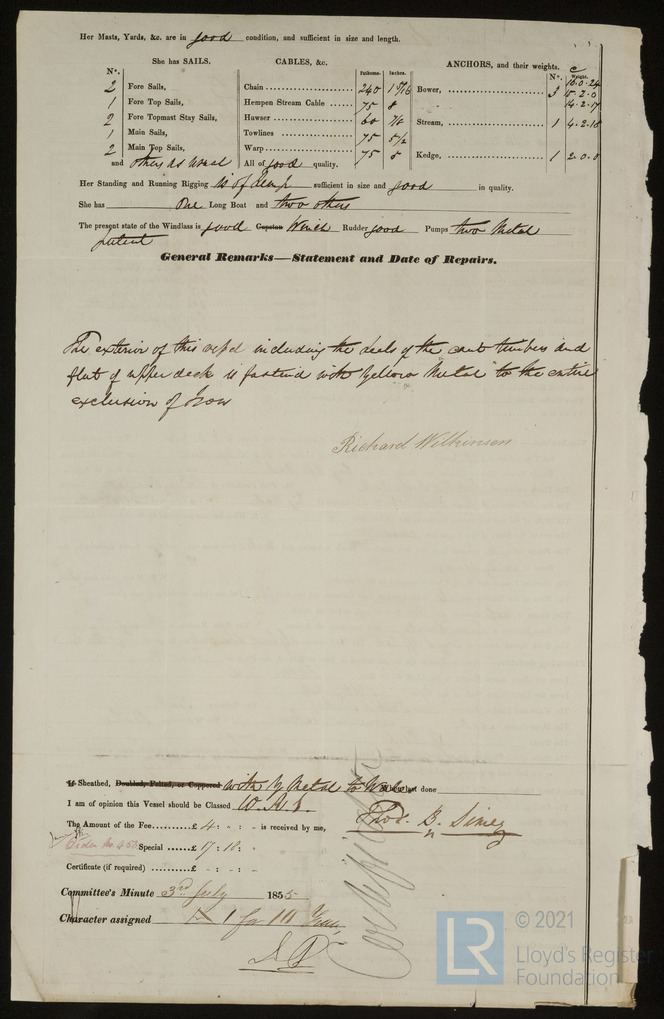 Her Masts, Yards, &c. are in good condition, and sufficient in size and length.
She has SAILS.
CABLES, &c.
Fathoms. Inches.
ANCHORS, and their weights.
Nº. Weight.
Nº.
2 Fore Sails,
1 Fore Top Sails,
2 Fore Topmast Stay Sails,
1 Main Sails,
2 Main Top Sails,
and others as usual
Chain 240
Hempen Stream Cable 75 8
Hawser 60
Towlines 75 5½
Warp 75 5
All of good quality.
Bower, 3 16.0.24
15.2.0
14.2.17
Stream, 1 4.2.18
Kedge, 1 2.0.8
Her Standing and Running Rigging is of Hemp sufficient in size and good in quality.
She has One Long Boat and two others
The present state of the Windlass is good Capstan Winch Rudder good Pumps two Metal
patent
General Remarks—Statement and Date of Repairs.
The exterior of this vessel including the heels of the cant timbers and
flat of upper deck is fastened with Yellow Metal to the entire
exclusion of Iron
Richard Wilkinson
If Sheathed, Doubled, Felted, or Coppered with Y Metal to When last done
I am of opinion this Vessel should be Classed
The Amount of the Fee £ 4 : " : - is received by me,
Thos. B. Simey
Special £ 17 : 18 : "
Certificate (if required) £ - : - : -
Committee's Minute 3rd July 1855
Character assigned A 1 for 10 Years
Certificate
© 2021
LR
Lloyd's Register
Foundation